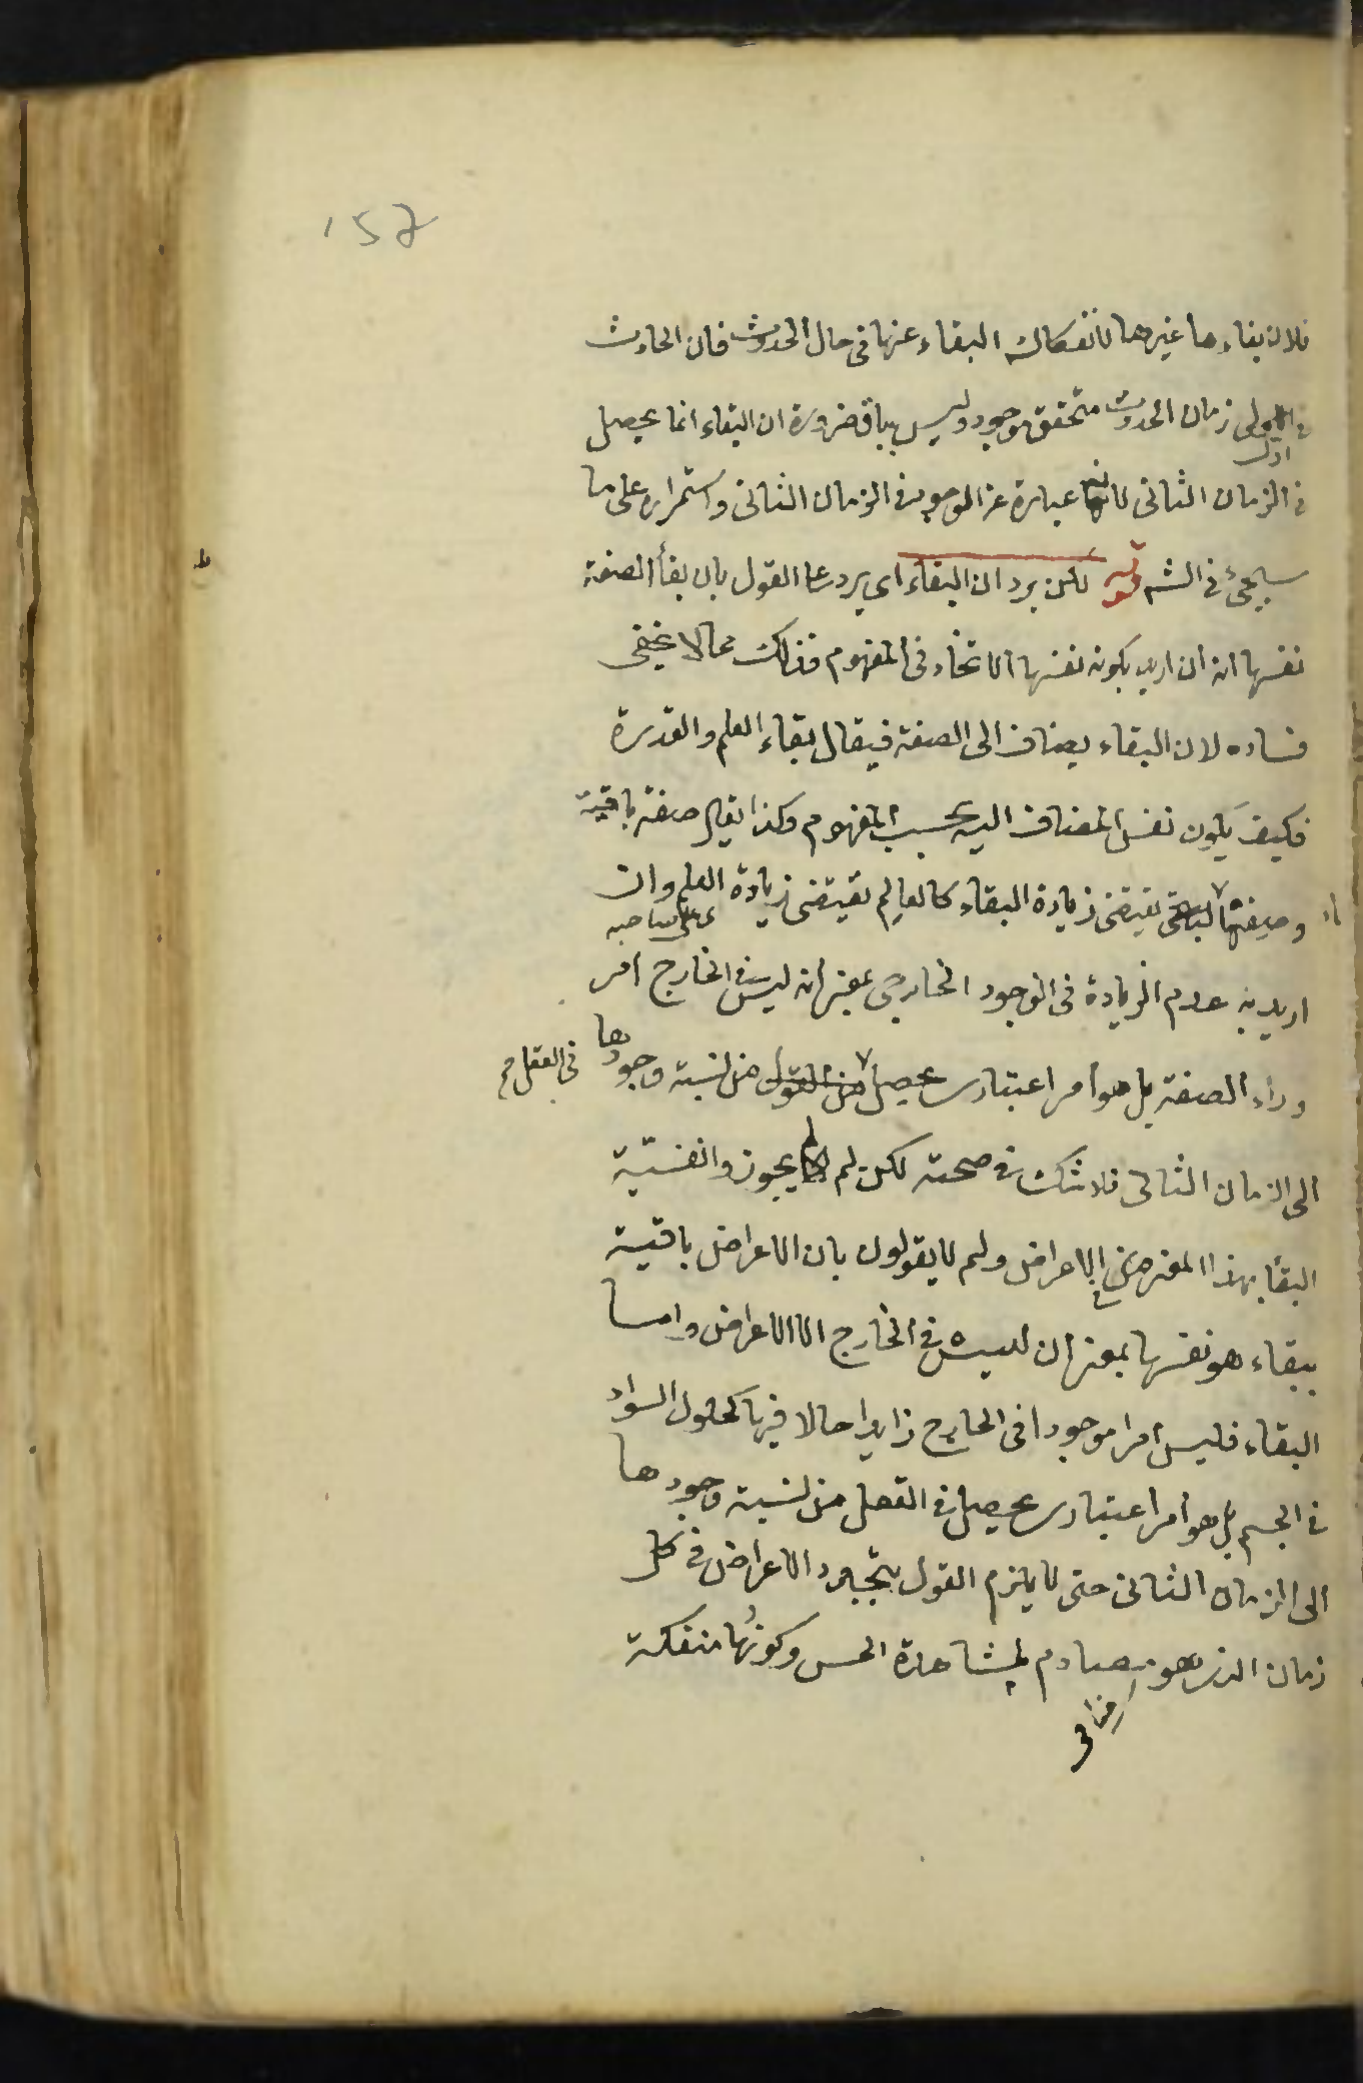 152
فلان بقاءها غيرها لانفكاك البقاء عنها فى حال الحدوث فان الحادث
فى زمان الحدوث متحقق موجود وليس بباق ضرورة ان البقاء انما يحصل
اول
فى الزمان الثانى لانه عبارة عن الوجود فى الزمان الثانى واستمراره على ما
سيجئ فى الشه قوله لكن يرد ان البقاء اى يرد على القول بان بقأ الصفة
نفسها انه ان اريد بكونه نفسها الاتحاد فى المفهوم فذلك مما لا يخفى
فساده لان البقاء يضاف الى الصفة فيقال بقاء العلم والقدرة
فكيف يكون نفس المضاف اليه بحسب المفهوم وكذا يقال صفة باقية
وصفتها يقتضى زيادة البقاء كالعالم يقتضى زيادة العلم وان
على صاحبه
اريد به عدم الزيادة فى الوجود الخارجى بمعنى انه ليس فى الخارج امر
وراء الصفة بل هو امر اعتبارى يحصل من القول من نسبة وجودها
فى العقل م
الى الزمان الثانى فلا شك فى صحته لكن لم لا يجوز وانفسيّة
البقأ بهذا المعنى فى الاعراض ولم لا يقولون بان الاعراض باقية
ببقاء هو نفسها بمعنى ان ليس فى الخارج الا الاعراض واما
البقاء فليس امرا موجودا فى الخارج زايدا حالا فيها كحلول السواد
فى الجسم بل هو امر اعتبارى يحصل فى العقل من نسبة وجودها
الى الزمان الثانى حتى لا يلزم القول بتجدد الاعراض فى كل
زمان الذى هو مصادم لمشاهدة الحس وكونها منفكة